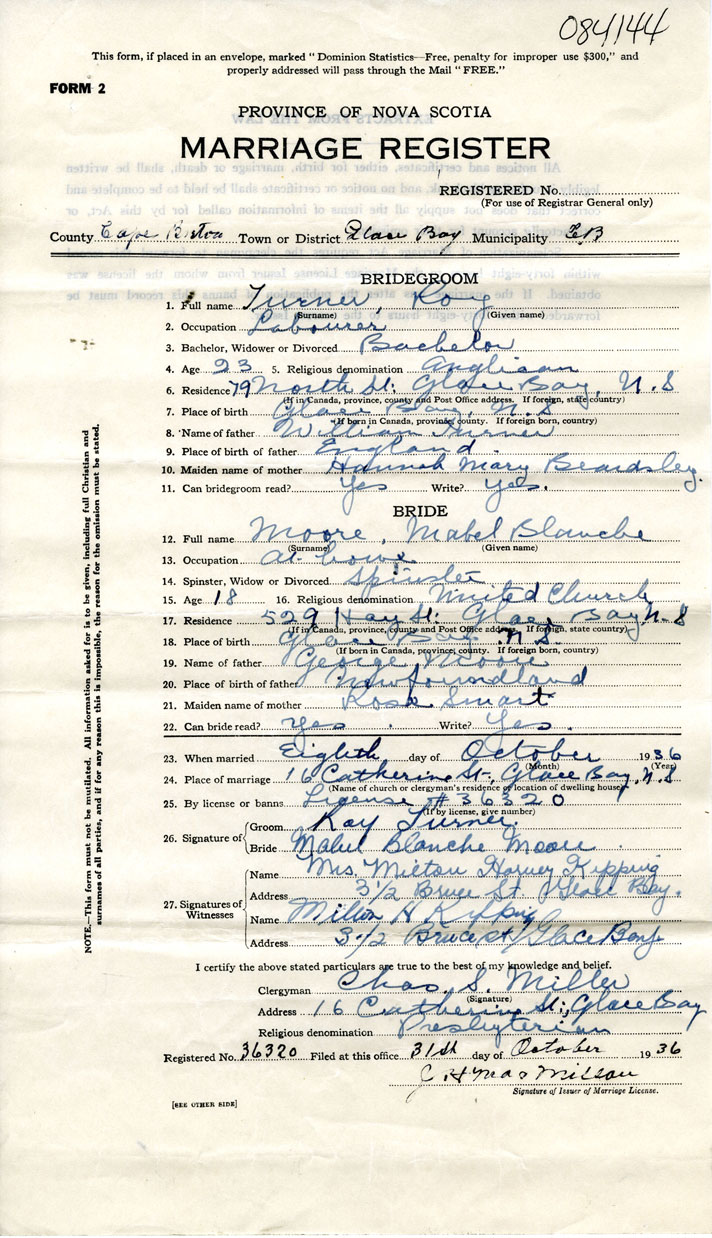 084144
This form, if placed in an envelope, marked "Dominion Statistics—Free, penalty for improper use $300," and
properly addressed will pass through the Mail "FREE."
FORM 2
PROVINCE OF NOVA SCOTIA
MARRIAGE REGISTER
REGISTERED No.
(For use of Registrar General only)
County Cape Breton Town or District Glace Bay Municipality C.B
BRIDEGROOM
1. Full name Turner, Roy
(Surname) (Given name)
2. Occupation Labourer
3. Bachelor, Widower or Divorced Bachelor
4. Age 23 5. Religious denomination Anglican
6. Residence 79 North St; Glace Bay, N.S
(If in Canada, province, county and Post Office address. If foreign, state country)
7. Place of birth Glace Bay, N.S
(If born in Canada, province, county. If foreign born, country)
8. Name of father William Turner
9. Place of birth of father England.
10. Maiden name of mother Hannah Mary Beardsley.
11. Can bridegroom read? Yes Write? Yes.
BRIDE
12. Full name Moore, Mabel Blanche
(Surname) (Given name)
13. Occupation at home
14. Spinster, Widow or Divorced Spinster
15. Age 18 16. Religious denomination United Church
17. Residence 529 Hay St: Glace Bay N.S
(If in Canada, province, county and Post Office address. If foreign, state country)
18. Place of birth Glace Bay N S.
(If born in Canada, province, county. If foreign born, country)
19. Name of father George Moore
20. Place of birth of father Newfoundland
21. Maiden name of mother Rose Smart
22. Can bride read? Yes. Write? Yes.
23. When married Eighth day of October 1936
(Month) (Year)
24. Place of marriage 16 Catherine St, Glace Bay, N.S
(Name of church or clergyman's residence or location of dwelling house)
25. By license or banns License #36320
(If by license, give number)
26. Signature of Groom Roy Turner.
Bride Mabel Blanche Moore
27. Signatures of Witnesses Name Mrs. Milton Harvey Kipping
Address 31/2 Bruce St. Glace Bay.
Name Milton H Kipping
Address 31/2 Bruce St Glace Bay
I certify the above stated particulars are true to the best of my knowledge and belief.
Clergyman Chas. S. Miller
(Signature)
Address 16 Catherine St; Glace Bay
Religious denomination Presbyterian
Registered No. 36320 Filed at this office 31st day of October 1936
Signature of Issuer of Marriage License.
[SEE OTHER SIDE]
NOTE.—This form must not be mutilated. All information asked for is to be given, including full Christian and
surnames of all parties, and if for any reason this is impossible, the reason for the omission must be stated.